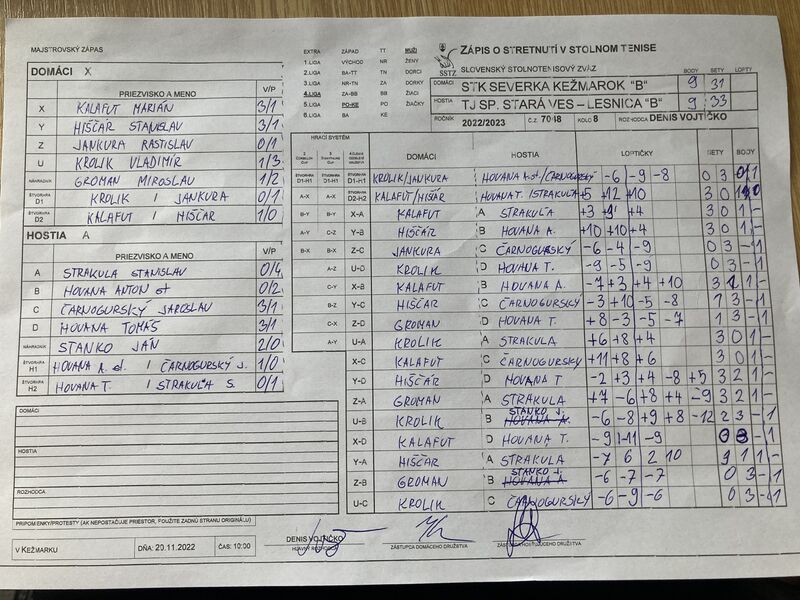 MAJSTROVSKÝ ZÁPAS
EXTRA ZÁPAD TT MUŽI
1.LIGA VÝCHOD NR ŽENY
2.LIGA BA-TT TN DORCI
3.LIGA NR-TN ZA DORKY
4.LIGA ZA-BB BB ŽIACI
5.LIGA PO-KE PO ŽIAČKY
6.LIGA BA KE
SSTZ
ZÁPIS O STRETNUTÍ V STOLNOM TENISE
SLOVENSKÝ STOLNOTENISOVÝ ZVÄZ
BODY SETY LOPTY
DOMÁCI STK SEVERKA KEŽMAROK "B" 9 31
HOSTIA TJ SP. STARÁ VES – LESNICA "B" 9 33
ROČNÍK 2022/2023 Č.Z. 7048 KOLO 8 ROZHODCA DENIS VOJTIČKO
DOMÁCI X
PRIEZVISKO A MENO V/P
X KALAFUT MARIÁN 3/1
Y HIŠČÁR STANISLAV 3/1
Z JANKURA RASTISLAV 0/1
U KROLIK VLADIMÍR 1/3
NÁHRADNÍK GROMAN MIROSLAV 1/2
ŠTVORHRA D1 KROLIK / JANKURA 0/1
D2 KALAFUT / HIŠČÁR 1/0
HOSTIA A
PRIEZVISKO A MENO V/P
A STRAKULA STANISLAV 0/4
B HOVANA ANTON st 0/2
C ČARNOGURSKÝ JAROSLAV 3/1
D HOVANA TOMÁŠ 3/1
NÁHRADNÍK STANKO JÁN 2/0
ŠTVORHRA H1 HOVANA A. st. / ČARNOGURSKÝ J. 1/0
ŠTVORHRA H2 HOVANA T. / STRAKUĽA S. 0/1
HRACÍ SYSTÉM DOMÁCI HOSTIA LOPTIČKY SETY BODY
ŠTVORHRA D1-H1 ŠTVORHRA D1-H1 ŠTVORHRA D1-H1 KROLIK/JANKURA HOVANA A. st./ČARNOGURSKÝ -6 -9 -8 0 3 0 1
A-X A-X ŠTVORHRA D2-H2 KALAFUT/HIŠČÁR HOVANA T. /STRAKUĽA +5 +12 +10 3 0
B-Y B-Y X-A KALAFUT A STRAKUĽA +3 +4 3 0 1 -
C-Z C-Z Y-B HIŠČÁR B HOVANA A. +10 +10 +4 3 0 1 -
B-X B-X Z-C JANKURA C ČARNOGURSKÝ -6 -4 -9 0 3 - 1
A-Z U-D KROLIK D HOVANA T. -9 -5 -9 0 3 - 1
C-Y X-B KALAFUT B HOVANA A. -7 +3 +4 +10 3 1 1 -
B-Z Y-C HIŠČÁR C ČARNOGURSKÝ -3 +10 -5 -8 1 3 - 1
C-X Z-D GROMAN D HOVANA T. +8 -3 -5 -7 1 3 - 1
A-Y U-A KROLIK A STRAKUĽA +6 +8 +4 3 0 1 -
X-C KALAFUT C ČARNOGURSKÝ +11 +8 +6 3 0 1 -
Y-D HIŠČÁR D HOVANA T -2 +3 +4 -8 +5 3 2 1 -
Z-A GROMAN A STRAKULA +7 -6 +8 +4 -9 3 2 1 -
STANKO J.
U-B KROLIK B HOVANA A. -6 -8 +9 +8 -12 2 3 - 1
X-D KALAFUT D HOVANA T. -9 -11 -9 0 3 - 1
Y-A HIŠČÁR A STRAKULA -7 6 2 10 1 1 -
STANKO J.
Z-B GROMAN B HOVANA A -6 -7 -7 0 3 - 1
U-C KROLIK C ČARNOGURSKÝ -6 -9 -6 0 3 - 1
DOMÁCI
HOSTIA
ROZHODCA
PRIPOMIENKY/PROTESTY (AK NEPOSTAČUJE PRIESTOR, POUŽITE ZADNÚ STRANU ORIGINÁLU)
V KEŽMARKU DŇA: 20.11.2022 ČAS: 10:00
DENIS VOJTIČKO
HLAVNÝ ROZHODCA
ZÁSTUPCA DOMÁCEHO DRUŽSTVA
ZÁSTUPCA HOSŤUJÚCEHO DRUŽSTVA